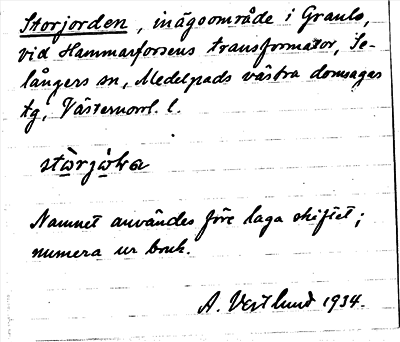 Storjorden, inägoområde i Granlo,
vid Hammarforsens transformator, Se-
långers sn, Medelpads västra domsagas
tg, Västernorrl. l.
Namnet användes före laga skiftet;
numera ur bruk.
A. Vestlund 1934.